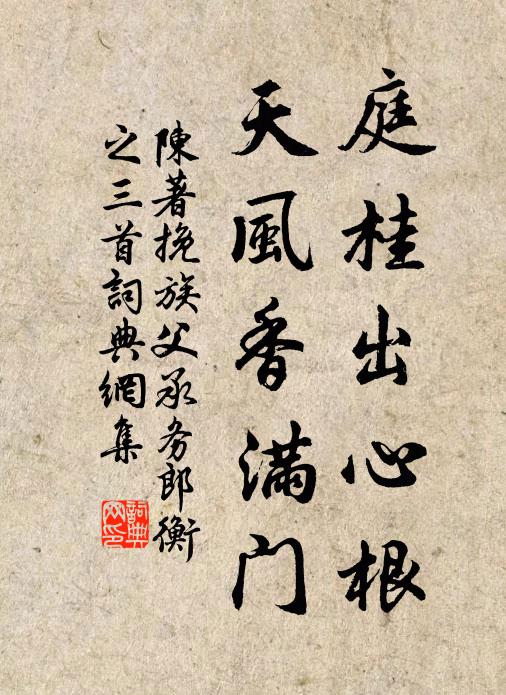 庭桂出心根
天風香满门
陳著挽族父承务郎衡
之三首詞典網集
詞典
网印